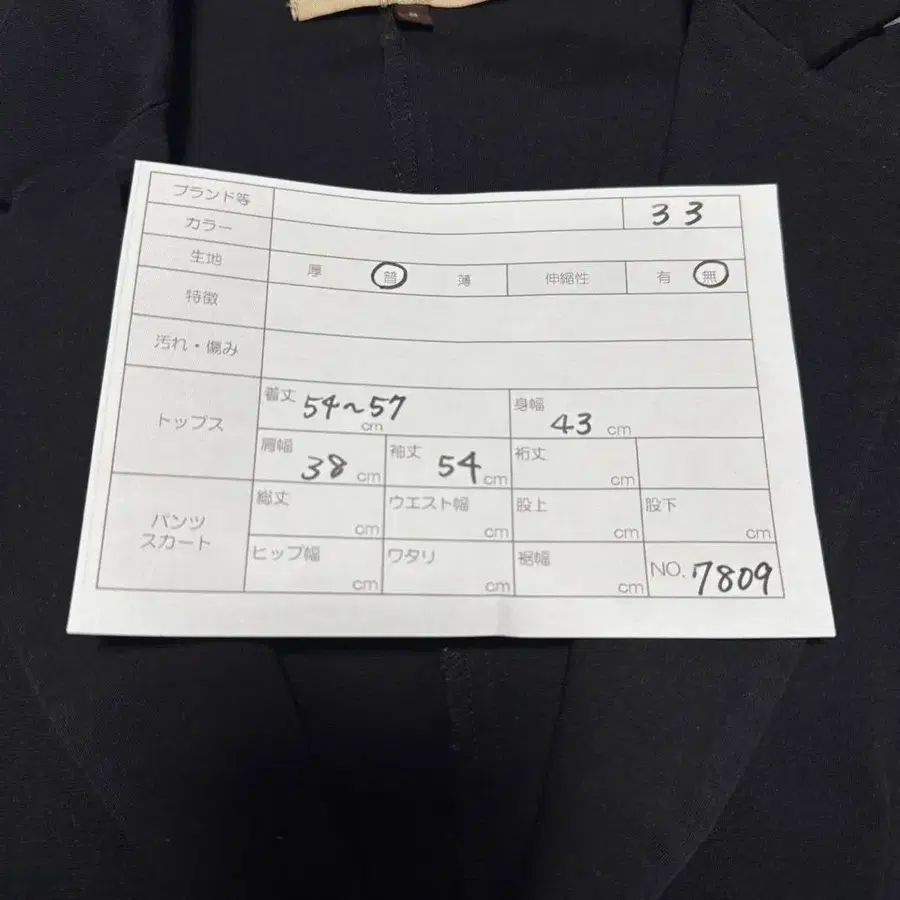 ブランド等 33
カラー
生地 厚 普 薄 伸縮性 有 無
特徴
汚れ・傷み
トップス
着丈 54~57 cm 身幅 43 cm
肩幅 38 cm 袖丈 54 cm 裄丈 cm
パンツ
スカート
総丈 cm ウエスト幅 cm 股上 cm 股下 cm
ヒップ幅 cm ワタリ cm 裾幅 cm NO. 7809